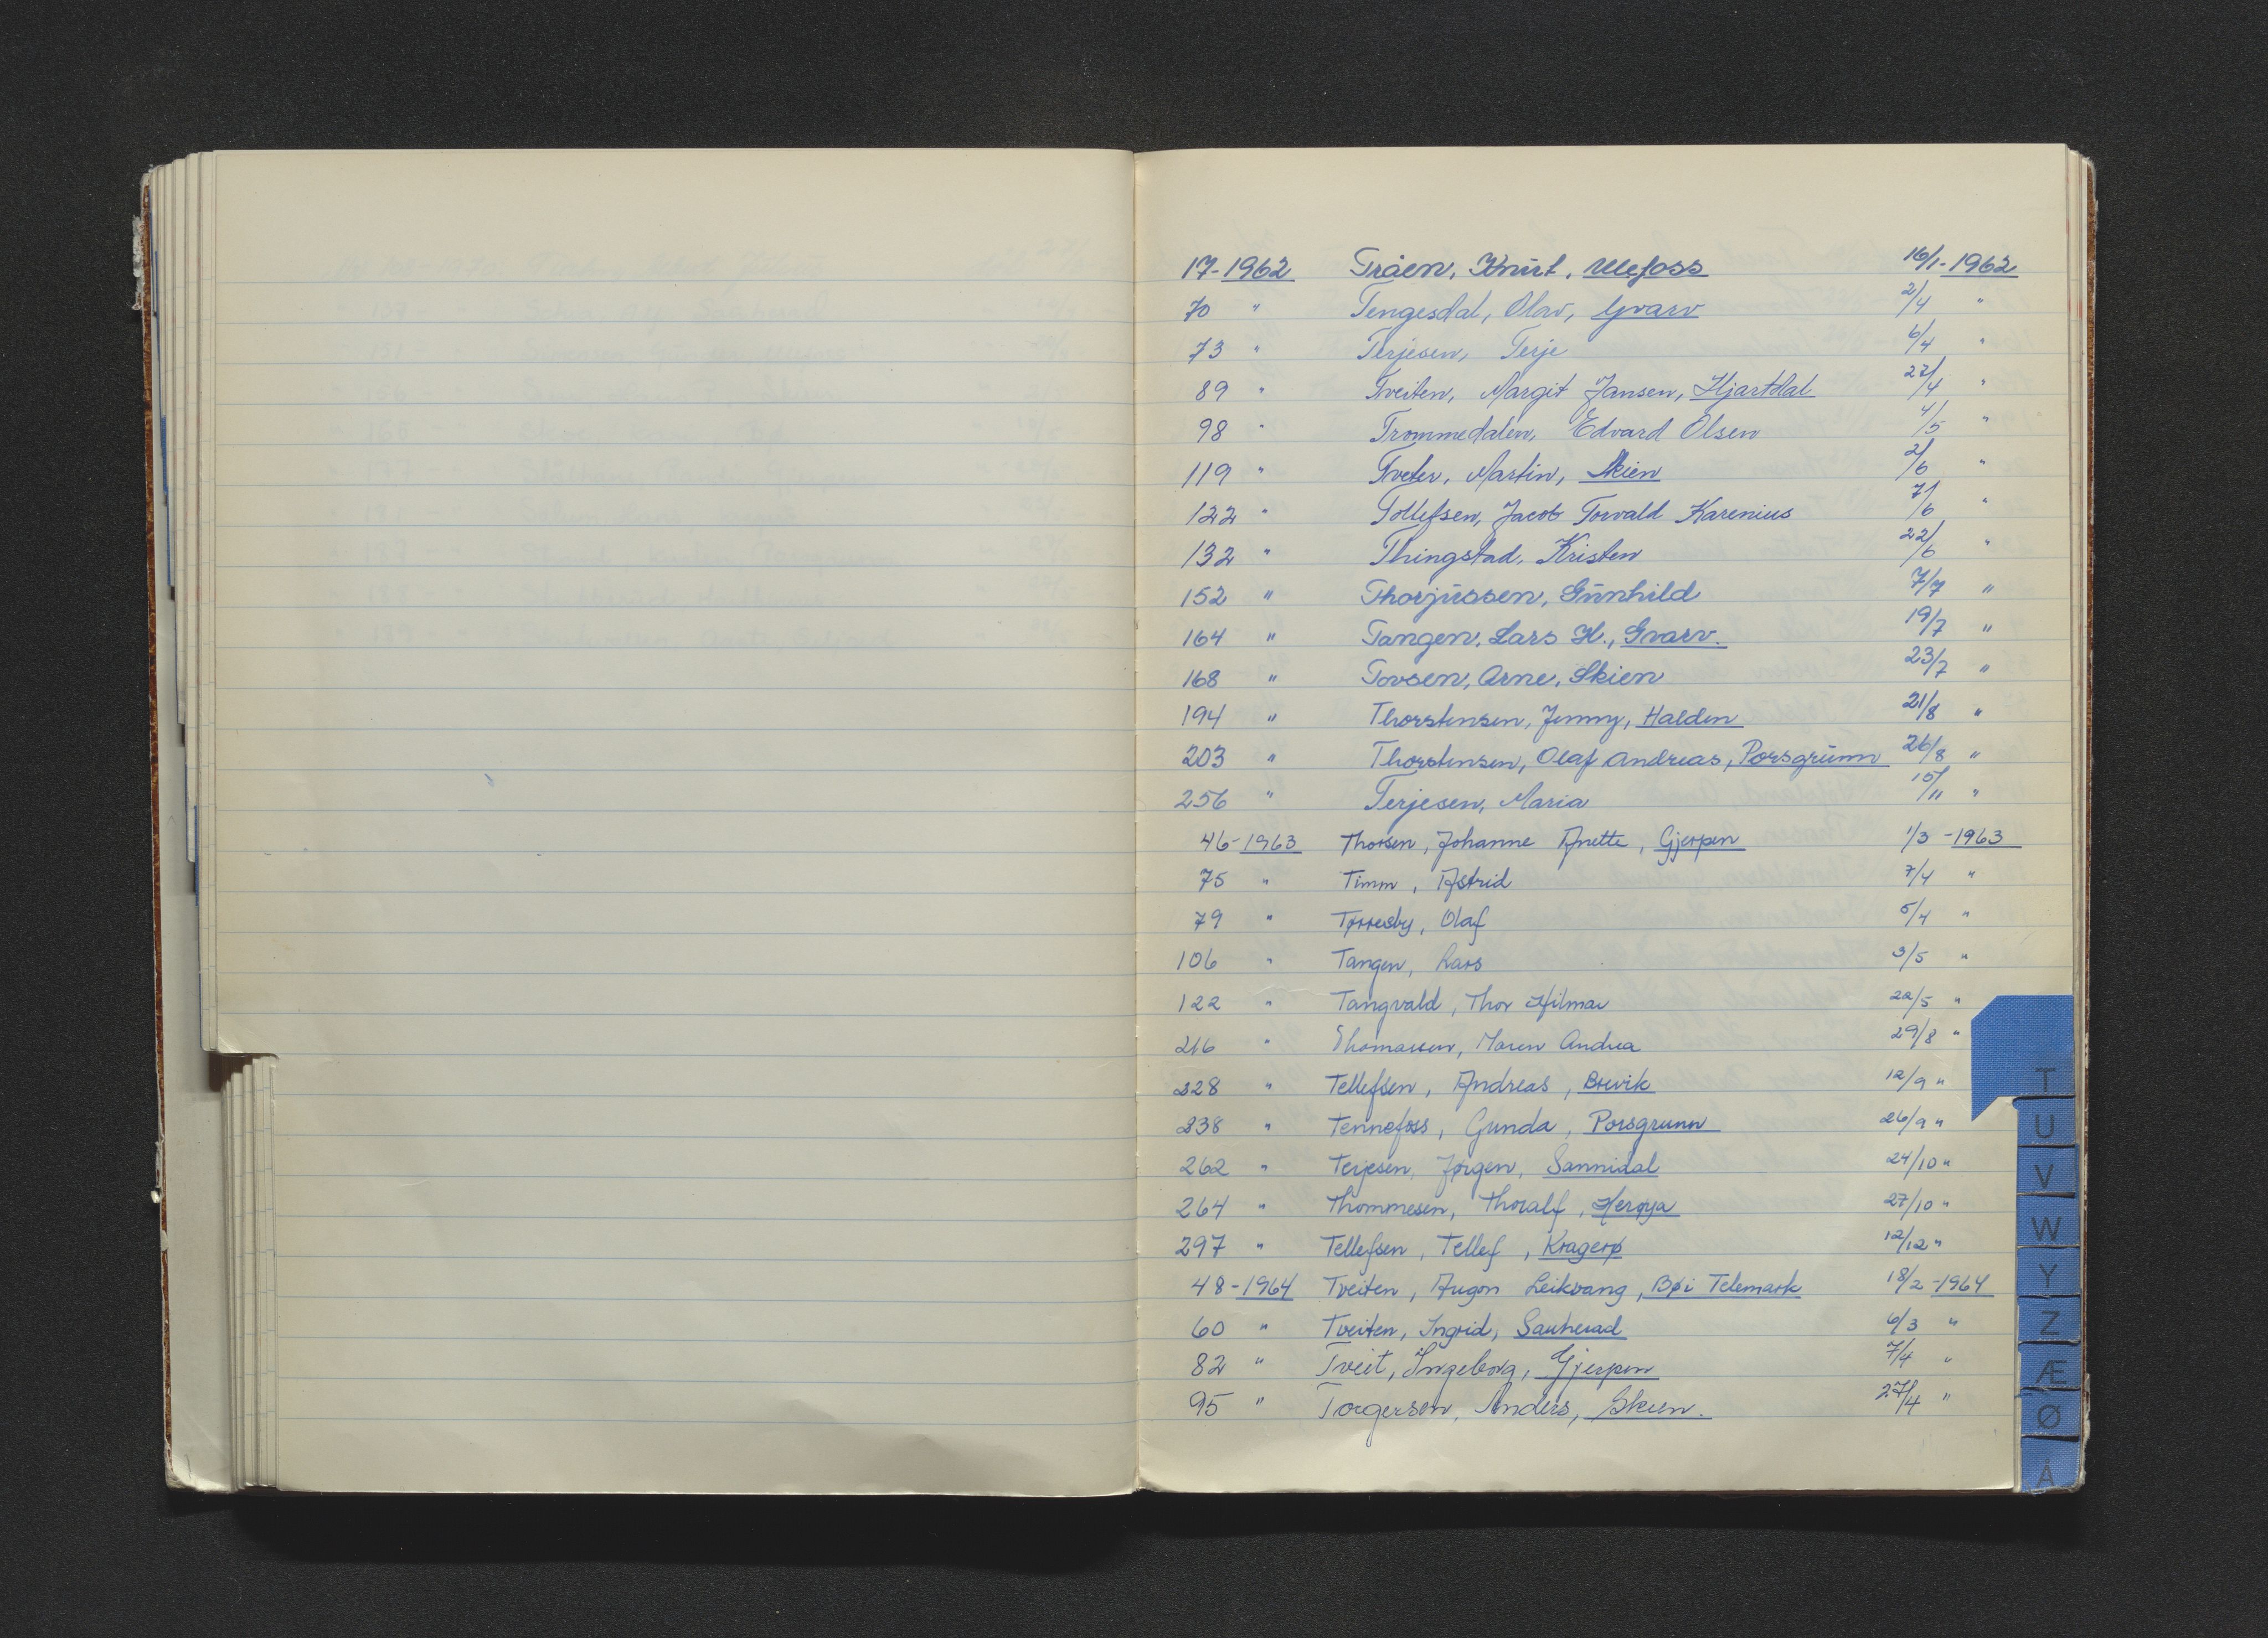 17-1962 Tråen, Knut, Ulefoss 16/1-1962
70 " Tengesdal, Olav, Gvarv 2/4 "
73 " Terjesen, Terje 6/4 "
89 " Tveiten, Margit Jansen, Hjartdal 27/4 "
98 " Trommedalen, Edvard Olsen 4/5 "
119 " Tveter, Martin, Skien 2/6 "
122 " Tollefsen, Jacob Torvald Karenius 7/6 "
132 " Thingstad, Kristen 22/6 "
152 " Thorjussen, Gunhild 7/7 "
164 " Tangen, Lars H., Gvarv. 19/7 "
168 " Tovsen, Arne, Skien 23/7 "
194 " Thorstensen, Jenny, Halden 21/8 "
203 " Thorstensen, Olaf Andreas, Porsgrunn 26/8 "
256 " Terjesen, Maria 15/11 "
46-1963 Thorsen, Johanne Anette, Gjerpen 1/3-1963
75 " Timm, Astrid 7/4 "
79 " Tørresby, Olaf 5/4 "
106 " Tangen, Lars 3/5 "
122 " Tangvald, Thor Hilmar 22/5 "
216 " Thomassen, Maren Andrea 29/8 "
228 " Tellefsen, Andreas, Brevik 12/9 "
238 " Tennefoss, Gunda, Porsgrunn 26/9 "
262 " Terjesen, Jørgen, Sannidal 24/10 "
264 " Thommesen, Thoralf, Herøya 27/10 "
297 " Tellefsen, Tellef, Kragerø 12/12 "
48-1964 Tveiten, Augon Leikvang, Bø i Telemark 18/2-1964
60 " Tveiten, Ingrid, Sauherad 6/3 "
82 " Tveit, Ingeborg, Gjerpen 7/4 "
95 " Torgersen, Anders, Skien. 27/4 "
T
U
V
W
Y
Z
Æ
Ø
Å